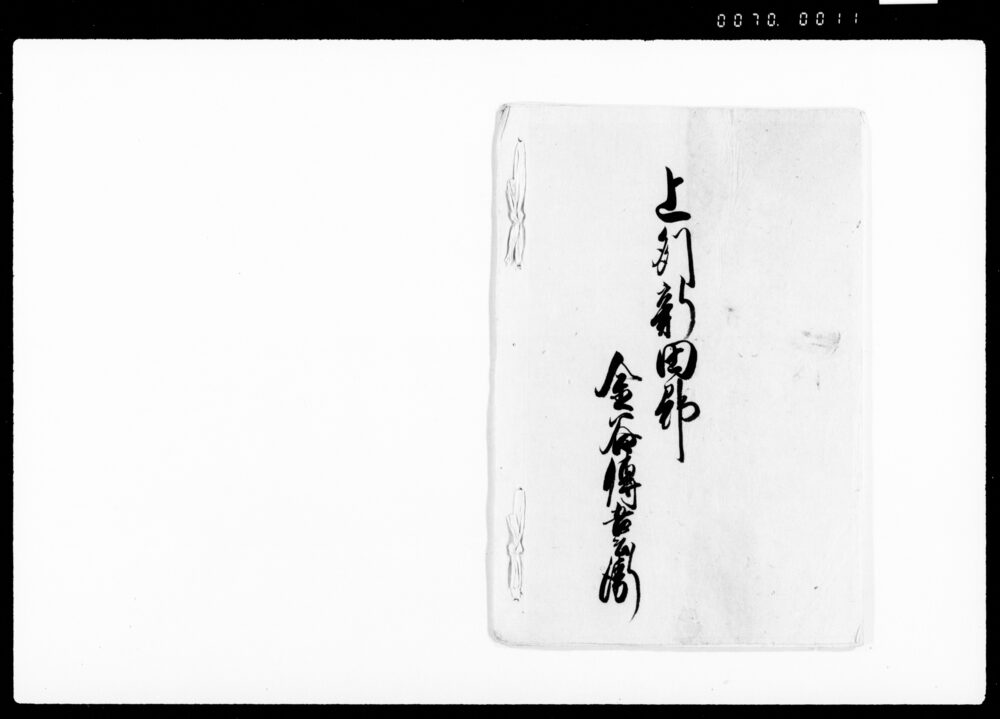 0070. 0011
上州新田郡
金谷博吉兵衛